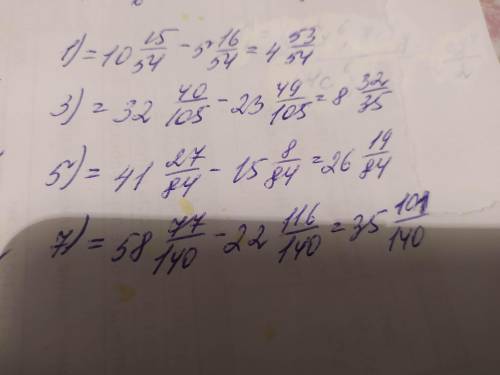 1) = 10 15/54 - 5 16/54 = 4 53/54
3) = 32 40/105 - 23 49/105 = 8 32/35
5) = 41 27/84 - 15 8/84 = 26 19/84
7) = 58 77/140 - 22 116/140 = 35 101/140